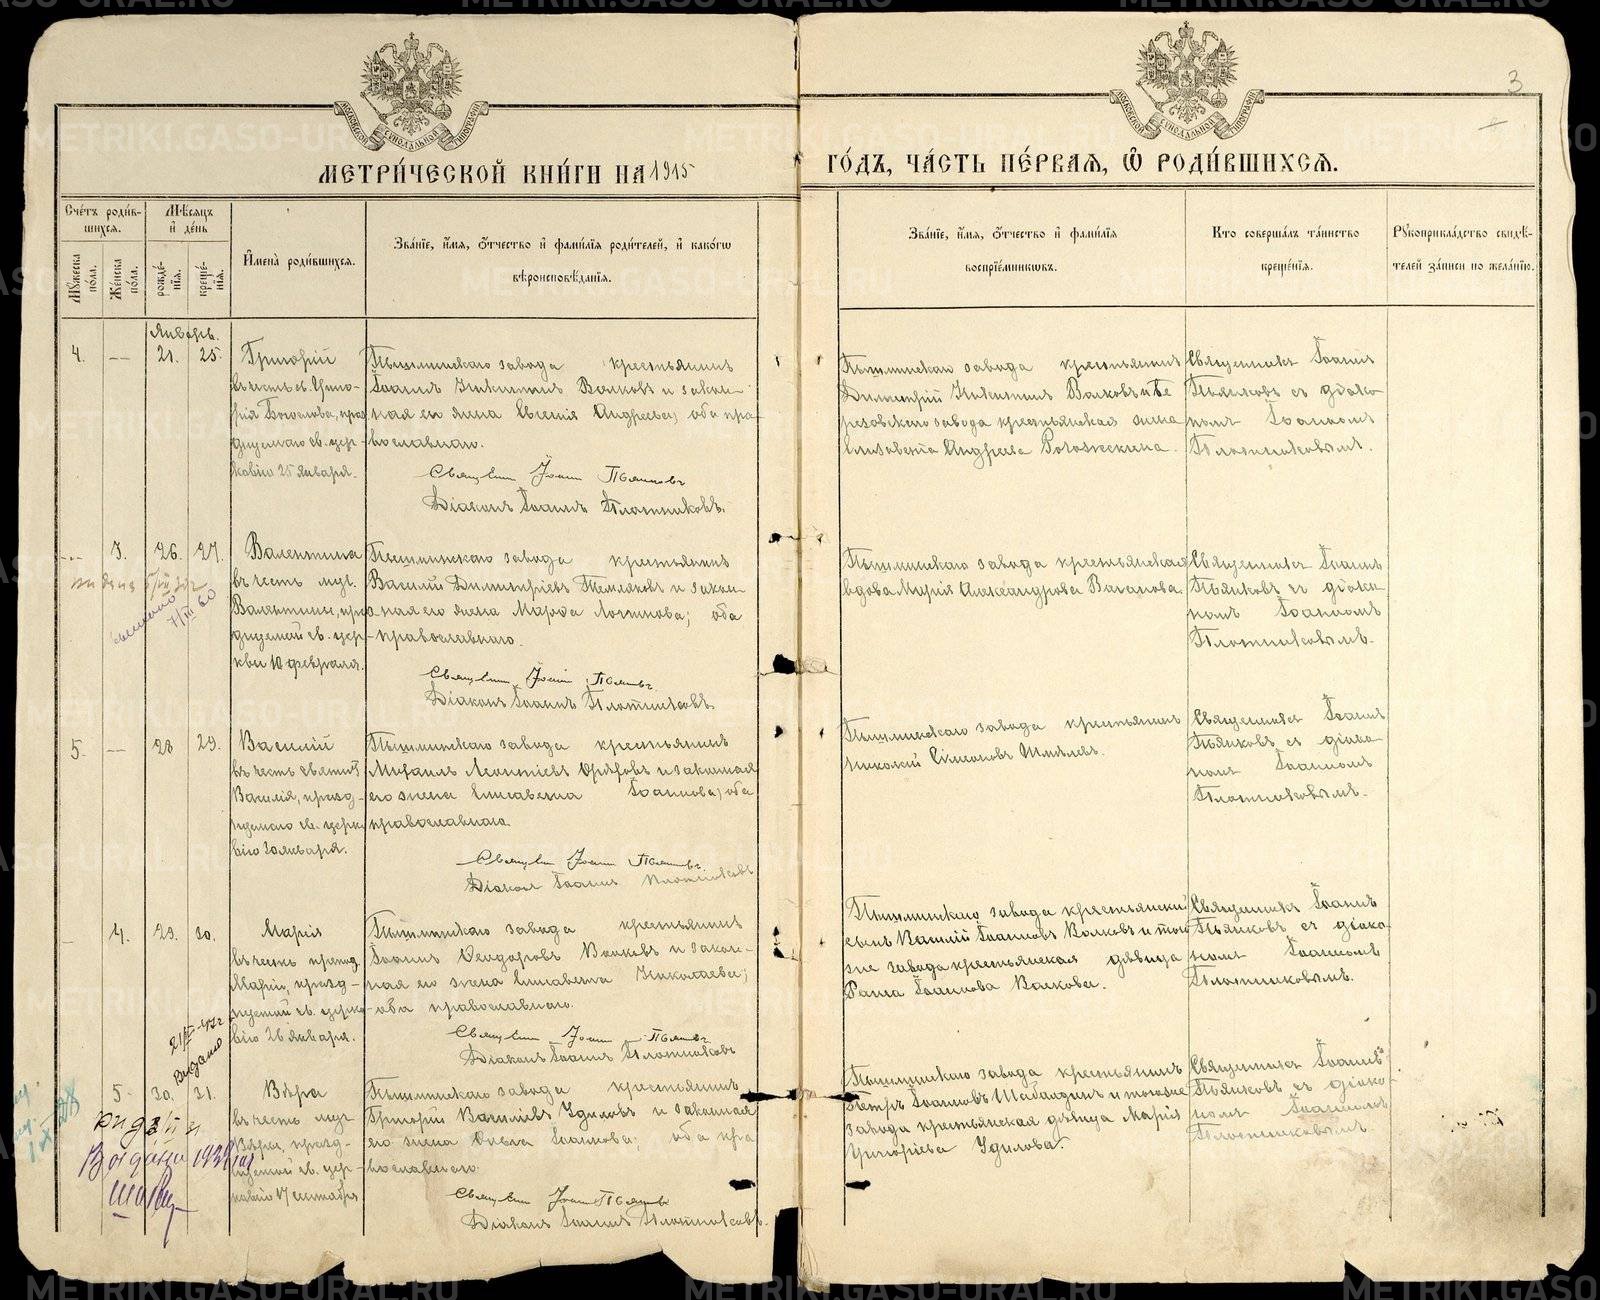 3
МЕТРИ́ЧЕСКОЙ КНИ́ГИ НА 1915
ГО́ДЪ, ЧА́СТЬ ПЕ́РВАЯ, Ѿ РОДИ́ВШИХСЯ.
Сче́тъ роди́в-
шихся.
Мѣ́сяцъ
и҆ де́нь
Мꙋ́жеска по́ла.
Же́нска по́ла.
рожде́-
нїя.
креще́-
нїя.
И҆мена̀ роди́вшихся.
Зва́нїе, и҆́мя, ѻ҆́тчество и҆ фами́лїя роди́телей, и҆ како́гѡ
вѣроисповѣ́данїя.
Зва́нїе, и҆́мя, ѻ҆́тчество и҆ фами́лїя
воспрїе́мниковъ.
Кто̀ соверша́лъ та́инство
креще́нїя.
Рꙋкоприкла́дство свидѣ́-
телей за́писи по жела́нїю.
Январь.
4. — 21. 25.
Григорій
въ честь св. Григо-
рія Богослова, праз
днуемаго св. цер-
ковію 25 января.
Пышминскаго завода крестьянинъ
Іоаннъ Никитинъ Волковъ и закон-
ная его жена Евгенія Андреева, оба пра-
вославнаго.
Священ Іоаннъ Пьянковъ
Діаконъ Іоаннъ Плотниковъ.
Пышминскаго завода крестьянинъ
Димитрій Никитинъ Волковъ и Бе
резовскаго завода крестьянская жена
Елизавета Андреева
Священникъ Іоаннъ
Пьянковъ съ діако-
номъ Іоанномъ
Плотниковымъ.
— 3. 26. 27.
Валентина
въ честь муч.
Валентины, пра
днуемой св. цер-
квію 10 февраля.
Пышминскаго завода крестьянинъ
Василій Димитріевъ Темляковъ и закон-
ная его жена Марѳа Логинова; оба
православнаго.
Священ Іоаннъ Пьянковъ
Діаконъ Іоаннъ Плотниковъ
Пышминскаго завода крестьянская
вдова Марія Александрова Ваганова.
Священникъ Іоаннъ
Пьянковъ съ діако-
номъ Іоанномъ
Плотниковымъ.
7/III 60
5. — 28 29.
Василій
въ честь святит
Василія, празд-
нуемаго св. церко
вію 30 января.
Пышминскаго завода крестьянинъ
Михаилъ Леонтіевъ и законная
его жена Елисавета Іоаннова, оба
православнаго.
Священ Іоаннъ Пьянковъ
Діаконъ Іоаннъ Плотниковъ
Пышминскаго завода крестьянинъ
Николай Симеоновъ Шмелевъ.
Священникъ Іоаннъ
Пьянковъ съ діако-
номъ Іоанномъ
Плотниковымъ.
— 4. 29. 30.
Марія
въ честь препод.
Маріи, празд-
нуемой св. церко
вію 26 января.
Пышминскаго завода крестьянинъ
Іоаннъ Ѳеодоровъ Волковъ и закон-
ная его жена Елисавета Николаева;
оба православнаго.
Священ Іоаннъ Пьянковъ
Діаконъ Іоаннъ Плотниковъ
Пышминскаго завода крестьянскій
сынъ Василій Іоанновъ Волковъ и того
же завода крестьянская дѣвица
Раиса Іоаннова Волкова.
Священникъ Іоаннъ
Пьянковъ съ діако-
номъ Іоанномъ
Плотниковымъ.
Выдано
5. 30. 31.
Вѣра
въ честь муч
Вѣры, празд-
нуемой св. цер-
ковію 17 сентября.
Пышминскаго завода крестьянинъ
Григорій Василіевъ Удиловъ и законная
его жена Ольга Іоаннова; оба пра
вославнаго.
Священ Іоаннъ Пьянковъ
Діаконъ Іоаннъ Плотниковъ.
Пышминскаго завода крестьянинъ
Петръ Іоанновъ Шабалдинъ и того же
завода крестьянская дѣвица Марія
Григоріева Удилова.
Священникъ Іоаннъ
Пьянковъ съ діако-
номъ Іоанномъ
Плотниковымъ.
METRIKI.GASO-URAL.RU